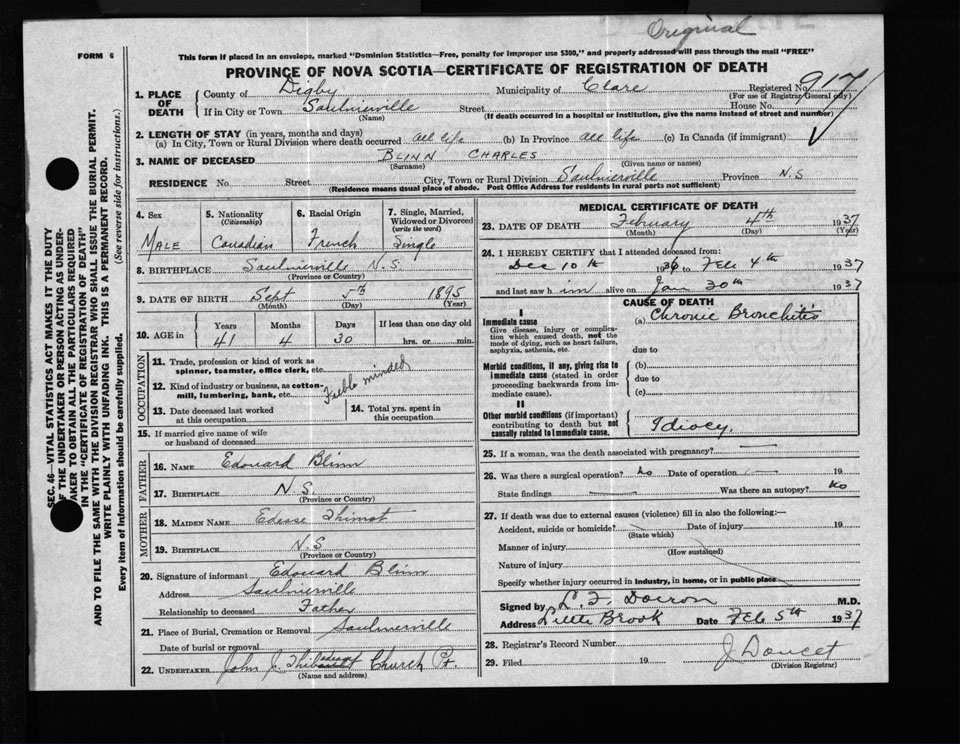 Original
FORM 6
This form if placed in an envelope, marked "Dominion Statistics—Free, penalty for improper use $300," and properly addressed will pass through the mail "FREE"
PROVINCE OF NOVA SCOTIA—CERTIFICATE OF REGISTRATION OF DEATH
1. PLACE OF DEATH County of Digby Municipality of Clare Registered No. 917
(For use of Registrar General only)
If in City or Town Saulnierville Street House No.
(Name) (If death occurred in a hospital or institution, give the name instead of street and number)
2. LENGTH OF STAY (in years, months and days)
(a) In City, Town or Rural Division where death occurred all life (b) In Province all life (c) In Canada (if immigrant)
3. NAME OF DECEASED BLINN CHARLES
(Surname) (Given name or names)
RESIDENCE No. Street City, Town or Rural Division Saulnierville Province N.S
(Residence means usual place of abode. Post Office Address for residents in rural parts not sufficient)
4. Sex MALE
5. Nationality (Citizenship) Canadian
6. Racial Origin French
7. Single, Married, Widowed or Divorced (write the word) Single
8. BIRTHPLACE Saulnierville N.S.
(Province or Country)
9. DATE OF BIRTH Sept 5th 1895
(Month) (Day) (Year)
10. AGE in Years 41 Months 4 Days 30 If less than one day old hrs. or min.
OCCUPATION
11. Trade, profession or kind of work as spinner, teamster, office clerk, etc.
12. Kind of industry or business, as cotton-mill, lumbering, bank, etc. Feeble minded
13. Date deceased last worked at this occupation
14. Total yrs. spent in this occupation
15. If married give name of wife or husband of deceased
FATHER
16. NAME Edouard Blinn
17. BIRTHPLACE N.S.
(Province or Country)
MOTHER
18. MAIDEN NAME Thimot
19. BIRTHPLACE N.S
(Province or Country)
20. Signature of informant Edouard Blinn
Address Saulnierville
Relationship to deceased Father
21. Place of Burial, Cremation or Removal Saulnierville
Date of burial or removal
22. UNDERTAKER John J. Church Pt.
(Name and address)
MEDICAL CERTIFICATE OF DEATH
23. DATE OF DEATH February 4th 1937
(Month) (Day) (Year)
24. I HEREBY CERTIFY that I attended deceased from:
Dec 10th 1936 Feb 4th 1937
and last saw him alive on Jan 30th 1937
CAUSE OF DEATH
I
Immediate cause (a) Chronic Bronchitis
Give disease, injury or complication which caused death, not the mode of dying, such as heart failure, asphyxia, asthenia, etc. due to
Morbid conditions, if any, giving rise to immediate cause (stated in order proceeding backwards from immediate cause). (b) due to (c)
II
Other morbid conditions (if important) contributing to death but not causally related to immediate cause. Idiocy.
25. If a woman, was the death associated with pregnancy?
26. Was there a surgical operation? No Date of operation 19
State findings Was there an autopsy? No
27. If death was due to external causes (violence) fill in also the following:—
Accident, suicide or homicide? Date of injury 19
(State which)
Manner of injury
(How sustained)
Nature of injury
Specify whether injury occurred in industry, in home, or in public place
Signed by L. F. Doiron M.D.
Address Little Brook Date Feb 5th 1937
28. Registrar's Record Number
29. Filed 19 J Doucet
(Division Registrar)
SEC. 46—VITAL STATISTICS ACT MAKES IT THE DUTY
OF THE UNDERTAKER OR PERSON ACTING AS UNDER-
TAKER TO OBTAIN ALL THE PARTICULARS REQUIRED
IN THE "CERTIFICATE OF REGISTRATION OF DEATH"
AND TO FILE THE SAME WITH THE DIVISION REGISTRAR WHO SHALL ISSUE THE BURIAL PERMIT.
WRITE PLAINLY WITH UNFADING INK. THIS IS A PERMANENT RECORD.
Every item of information should be carefully supplied. (See reverse side for instructions.)